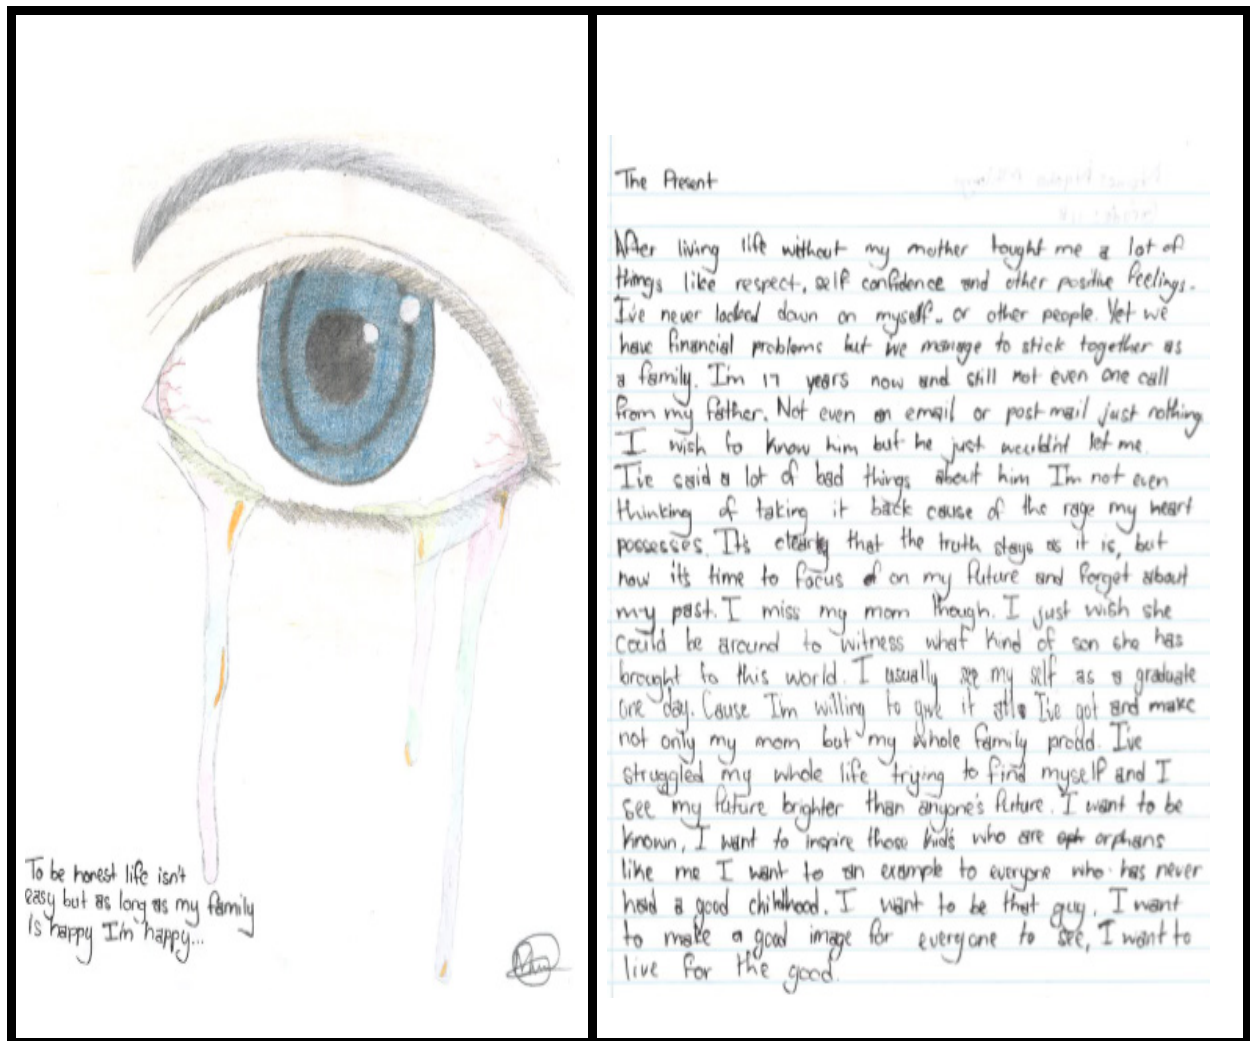 To be honest life isn't
easy but as long as my family
Is happy I'm happy...
The Present
After living life without my mother tought me a lot of
things like respect, self confidence and other positive feelings.
I've never looked down on myself or other people. Yet we
have financial problems but we manage to stick together as
a family. I'm 17 years now and still not even one call
from my father. Not even an email or post mail just nothing
I wish to know him but he just wouldn't let me.
I've said a lot of bad things about him I'm not even
thinking of taking it back cause of the rage my heart
possesses. It's clearly that the truth stays as it is, but
now it's time to focus on my future and forget about
my past. I miss my mom though. I just wish she
could be around to witness what kind of son she has
brought to this world. I usually see my self as a graduate
one day. Cause I'm willing to give it all I've got and make
not only my mom but my whole family proud. I've
struggled my whole life trying to find myself and I
see my future brighter than anyone's future. I want to be
known, I want to inspire those kids who are orphans
like me I want to an example to everyone who has never
had a good childhood. I want to be that guy, I want
to make a good image for everyone to see, I want to
live for the good.